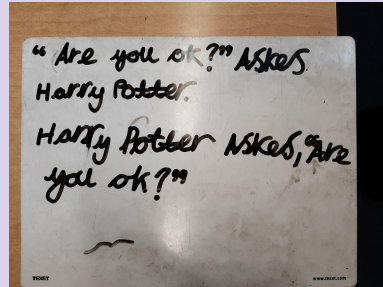 “Are you ok?” Askes
Harry Potter.
Harry Potter Askes, “Are
you ok?”
TEXET
www.texet.com